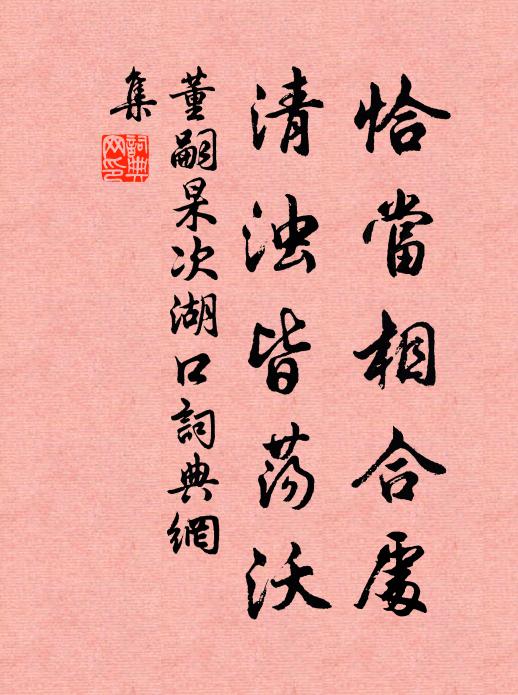 恰當相合處
清浊皆荡沃
董嗣杲次湖口詞典網
集
詞典
网印